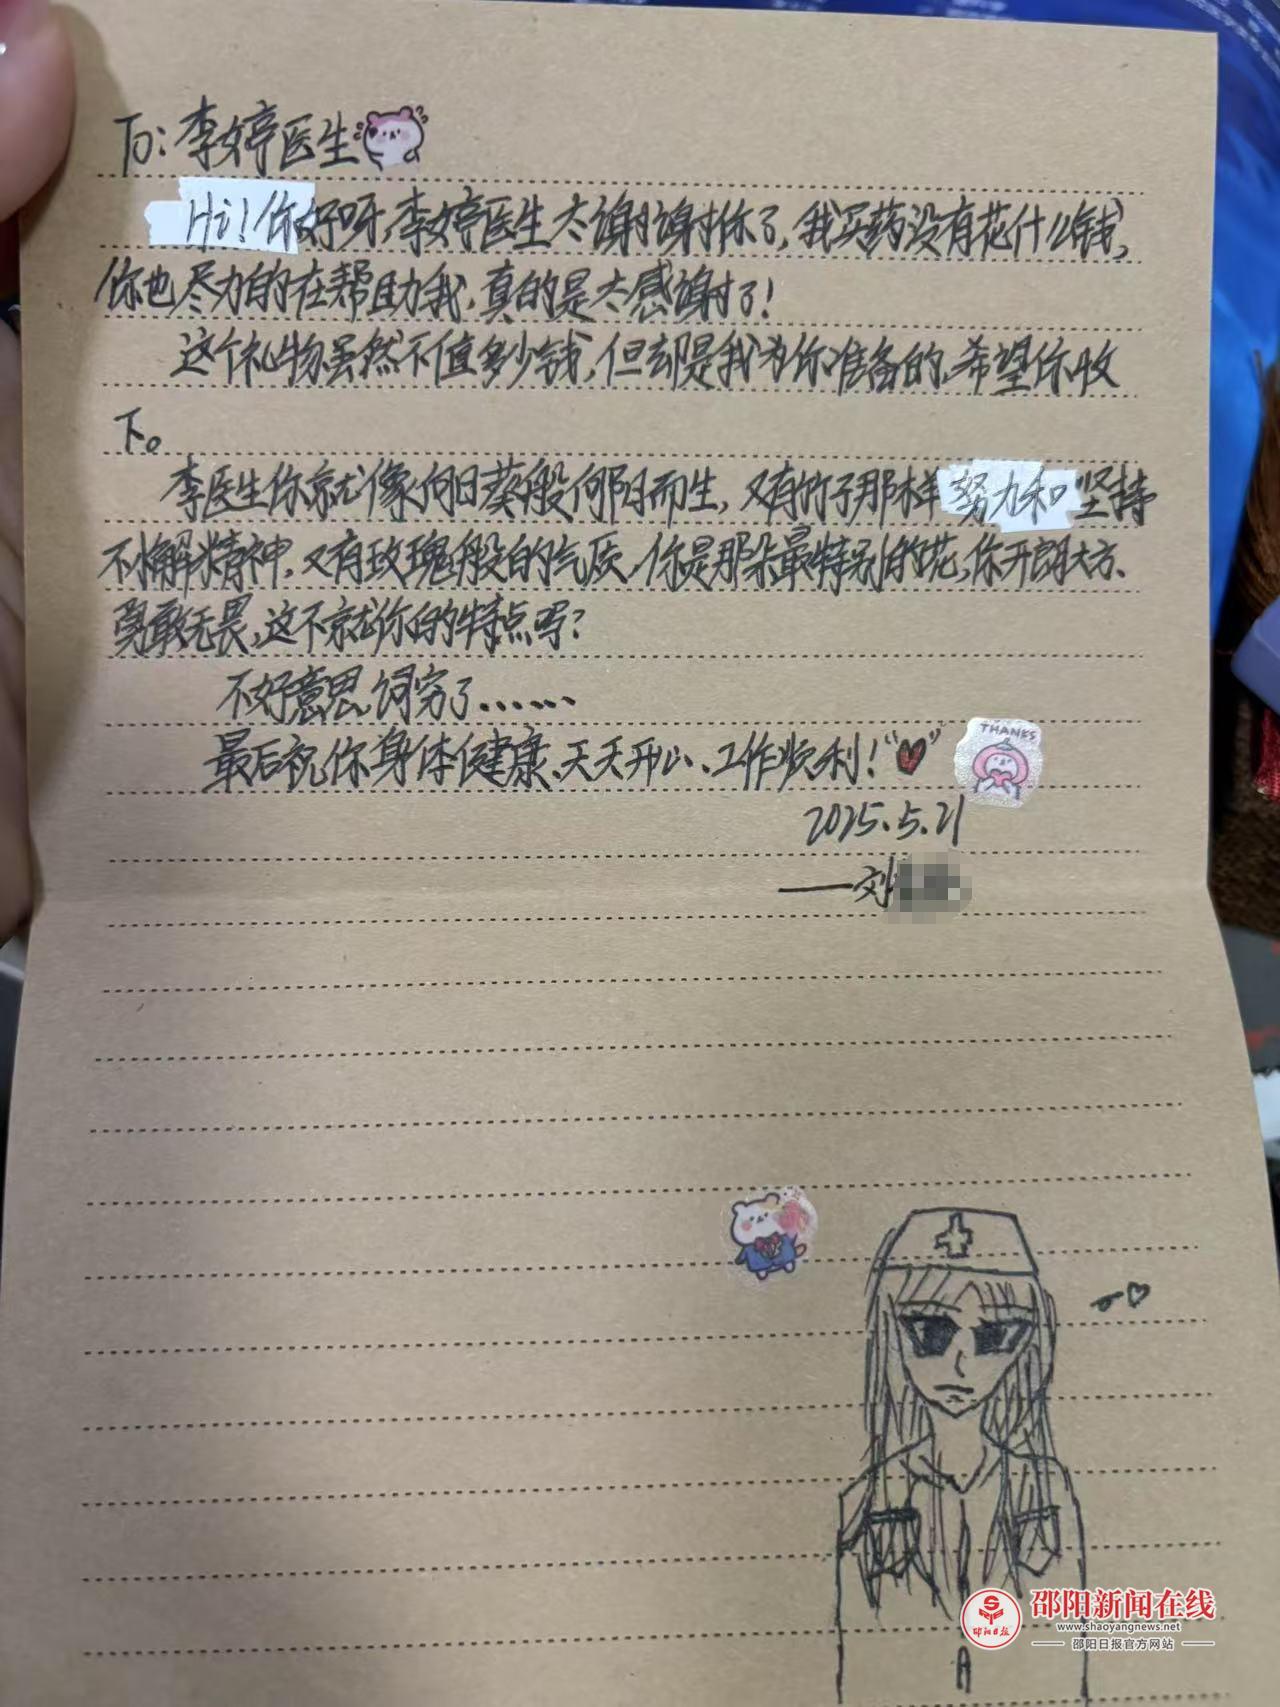 To：李婷医生
Hi！你好呀，李婷医生太谢谢你了，我买药没有花什么钱，
你也尽力的在帮助我，真的是太感谢了！
这个礼物虽然不值多少钱，但却是我为你准备的，希望你收
下。
李医生你就像向日葵般向阳而生，又有竹子那样努力和坚持
不懈精神，又有玫瑰般的气质，你是那朵最特别的花，你开朗大方、
勇敢无畏，这不就你的特点吗？
不好意思词穷了……
最后祝你身体健康、天天开心、工作顺利！
THANKS
2025.5.21
——刘
邵阳日报
邵阳新闻在线
www.shaoyangnews.net
邵阳日报官方网站
A